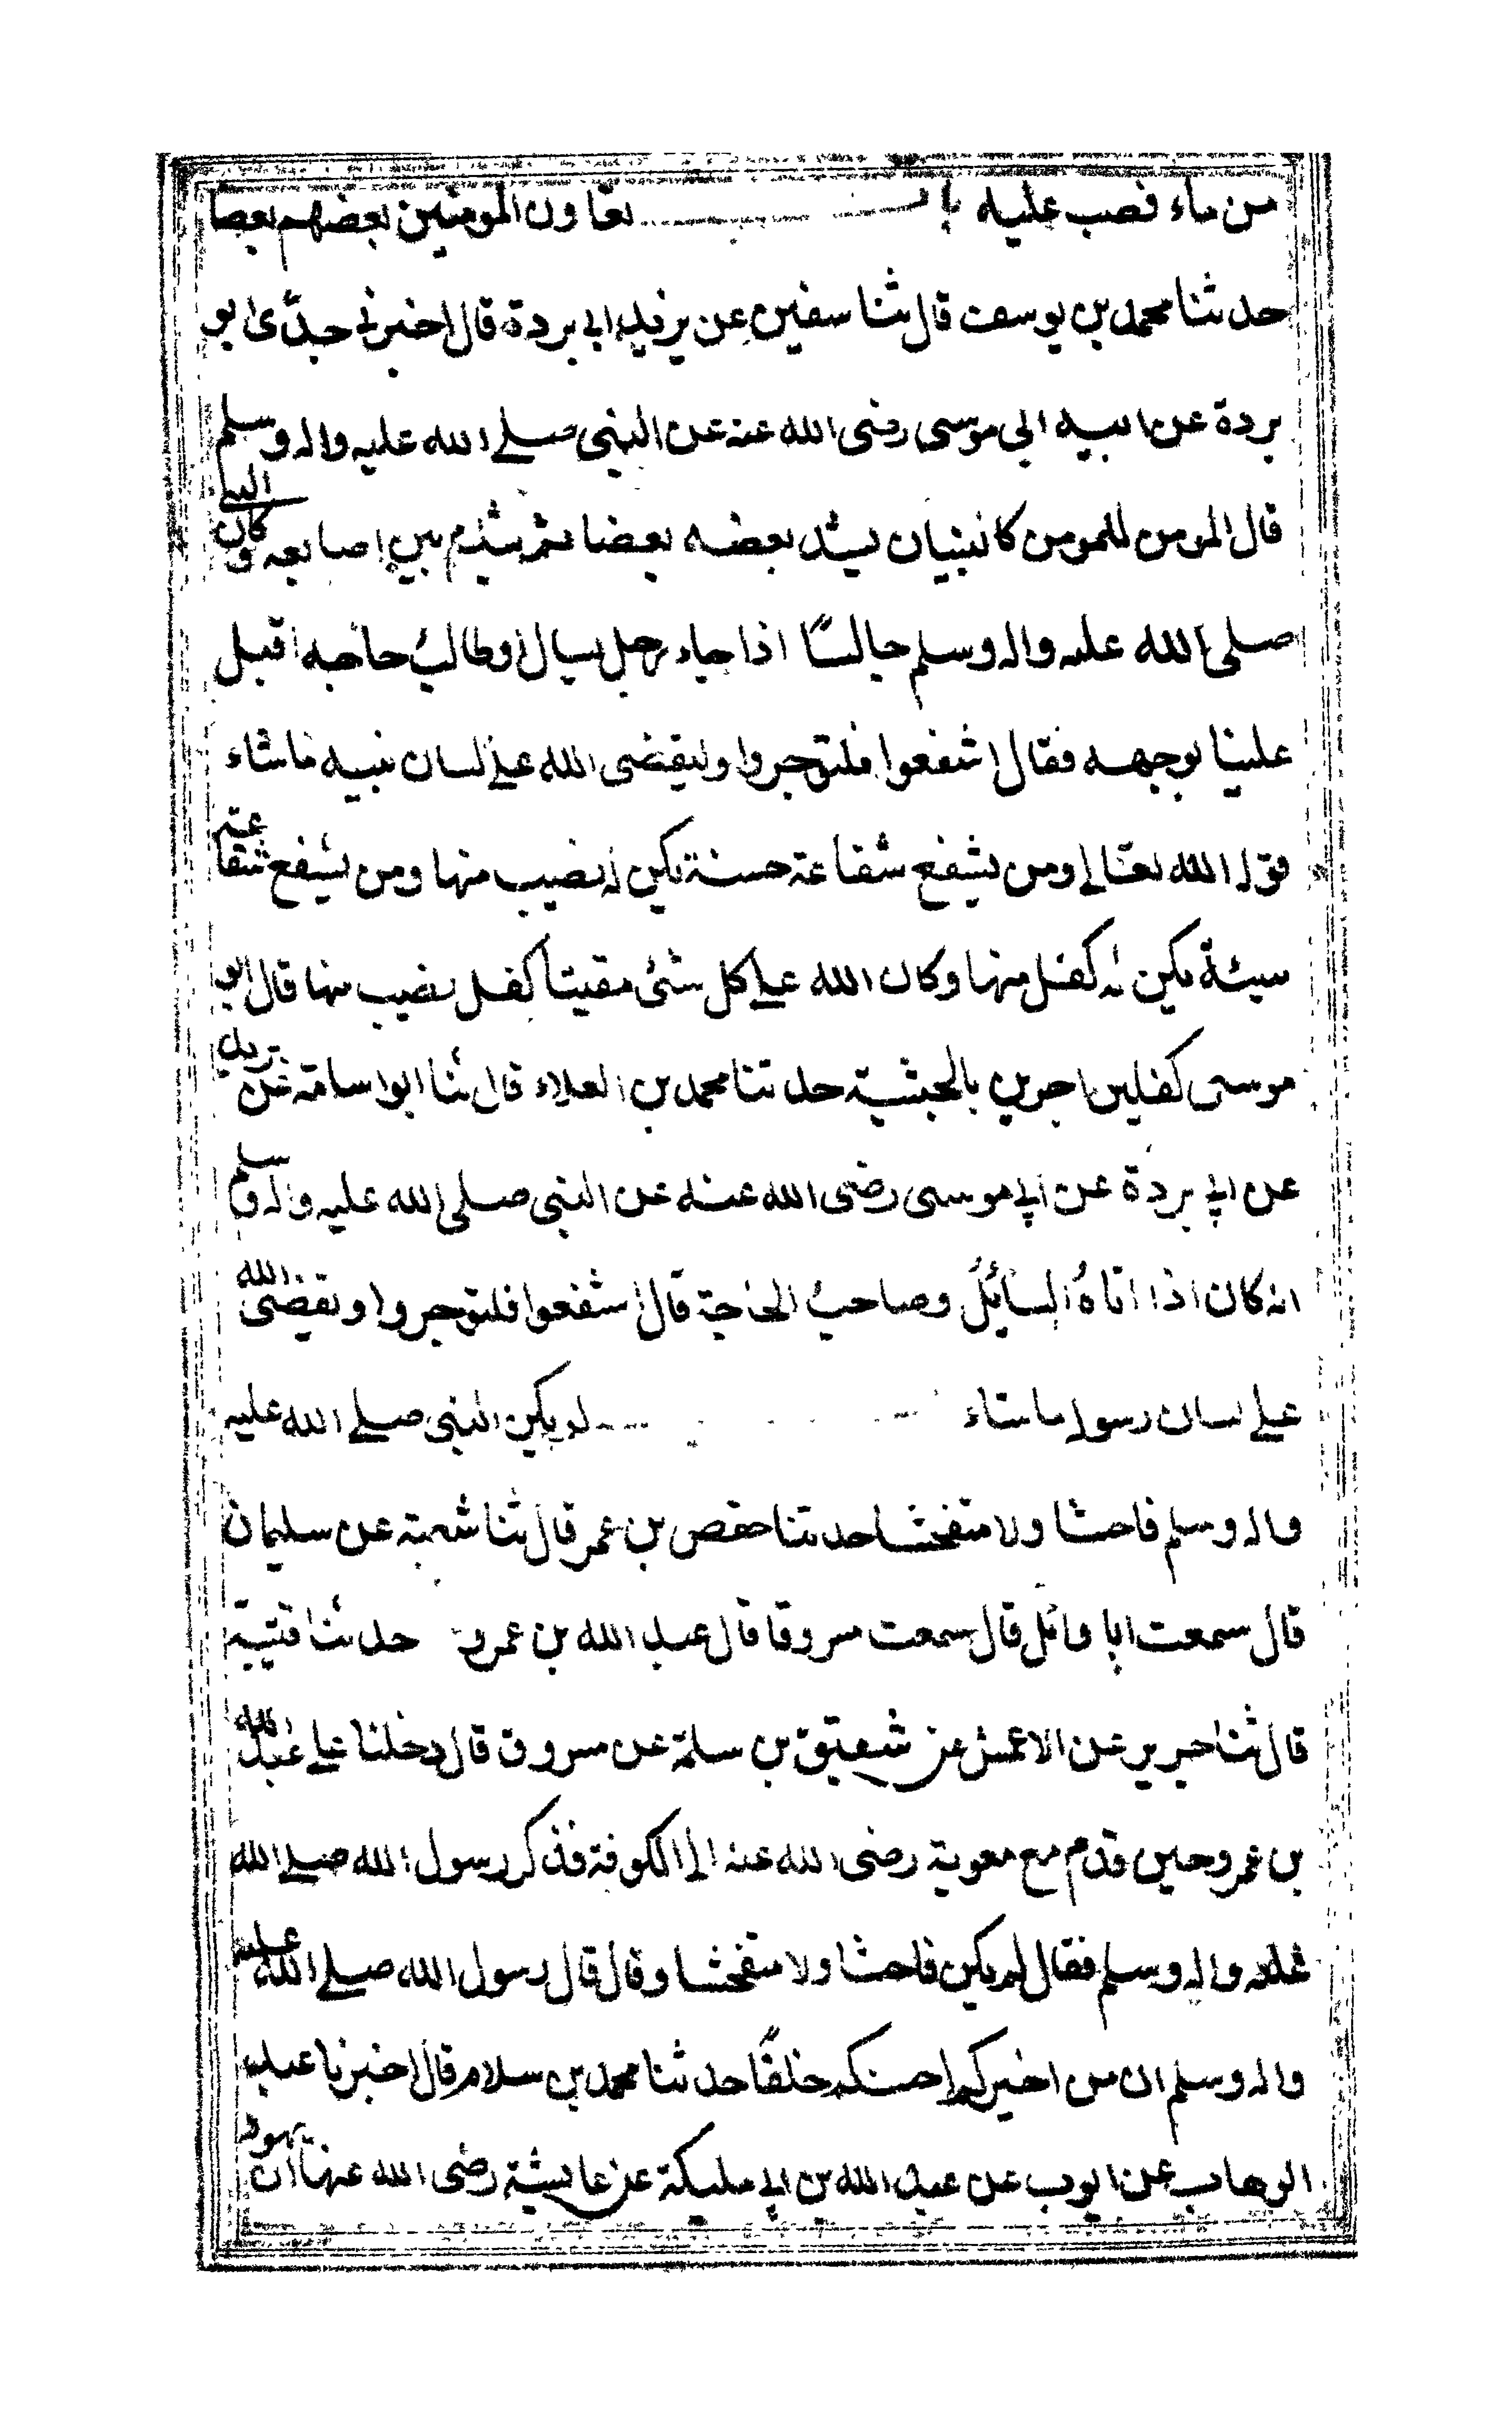 من ماء فصب عليه باب تعاون المومنين بعضهم بعضا
حدثنا محمد بن يوسف قال ثنا سفين عن بريد ابي بردة قال اخبرني جدّى ابو
بردة عن ابيه ابي موسى رضى الله عنه عن النبي صلے الله عليه واله وسلم
قال المومن للمومن كالبنيان يشد بعضه بعضا ثم شبك بين اصابعه وكان النبي
صلى الله عليه واله وسلم جالسًا اذا جاء رجل يسال او طالبُ حاجه اقبل
علينا بوجهه فقال اشفعوا فلتوجروا وليقضى الله علے لسان نبيه ماشاء
قول الله تعالے ومن يشفع شفاعة حسنة يكن له نصيب منها ومن يشفع شفاعة
سيئة يكن له كفل منها وكان الله علے كل شئ مقيتا كفل نصيب منها قال ابو
موسى كفلين اجرين بالحبشية حدثنا محمد بن العلاء قال ثنا ابو اسامة عن بريد
عن ابي بردة عن ابي موسى رضى الله عنه عن النبي صلى الله عليه واله وسلم
انه كان اذا اتاهُ السائلُ وصاحبُ الحاجة قال اشفعوا فلتوجروا ويقضى الله
علے لسان رسوله ماشاء لم يكن النبي صلے الله عليه
واله وسلم فاحشا ولا متفحشا حدثنا حفص بن عمر قال ثنا شعبة عن سليمان
قال سمعت ابا وائل قال سمعت مسروقا قال عبد الله بن عمرو حدثنا قتيبة
قال ثنا جرير عن الاعمش عن شقيق بن سلمة عن مسروق قال دخلنا علے عبد الله
بن عمرو حين قدم مع معوية رضى الله عنه الى الكوفة فذكر رسول الله صلے الله
عليه واله وسلم فقال لم يكن فاحشا ولا متفحشا وقال قال رسول الله صلے الله عليه
واله وسلم ان من اخيركم احسنكم خلقًا حدثنا محمد بن سلام قال اخبرنا عبد
الوهاب عن ايوب عن عبد الله بن ابي مليكة عن عايشة رضى الله عنها ان يهود